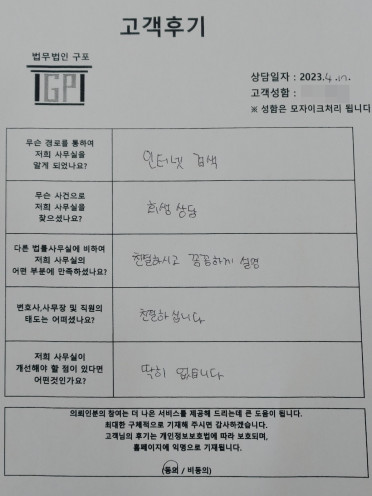 고객후기
법무법인 구포
GP
상담일자 : 2023. 4. 17.
고객성함 :
※ 성함은 모자이크처리 됩니다
무슨 경로를 통하여
저희 사무실을
알게 되었나요?
인터넷 검색
무슨 사건으로
저희 사무실을
찾으셨나요?
회생 상담
다른 법률사무실에 비하여
저희 사무실의
어떤 부분에 만족하셨나요?
친절하시고 꼼꼼하게 설명
변호사,사무장 및 직원의
태도는 어떠셨나요?
친절하십니다
저희 사무실이
개선해야 할 점이 있다면
어떤것인가요?
딱히 없습니다
의뢰인분의 참여는 더 나은 서비스를 제공해 드리는데 큰 도움이 됩니다.
최대한 구체적으로 기재해 주시면 감사하겠습니다.
고객님의 후기는 개인정보보호법에 따라 보호되며,
홈페이지에 익명으로 기재됩니다.
(동의 / 비동의)